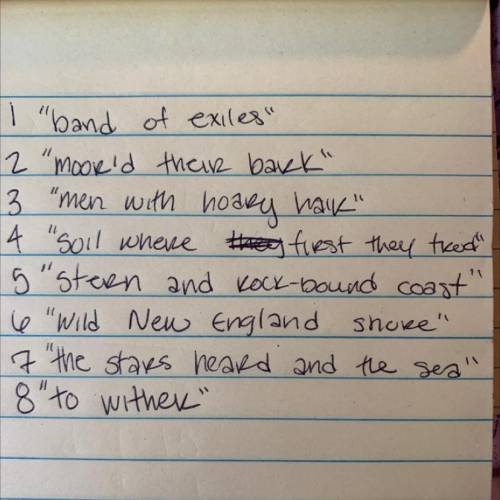 1 "band of exiles"
2 "moor'd their bark"
3 "men with hoary hair"
4 "soil where first they tred"
5 "stern and rock-bound coast"
6 "wild New England shore"
7 "the stars heard and the sea"
8 "to wither"